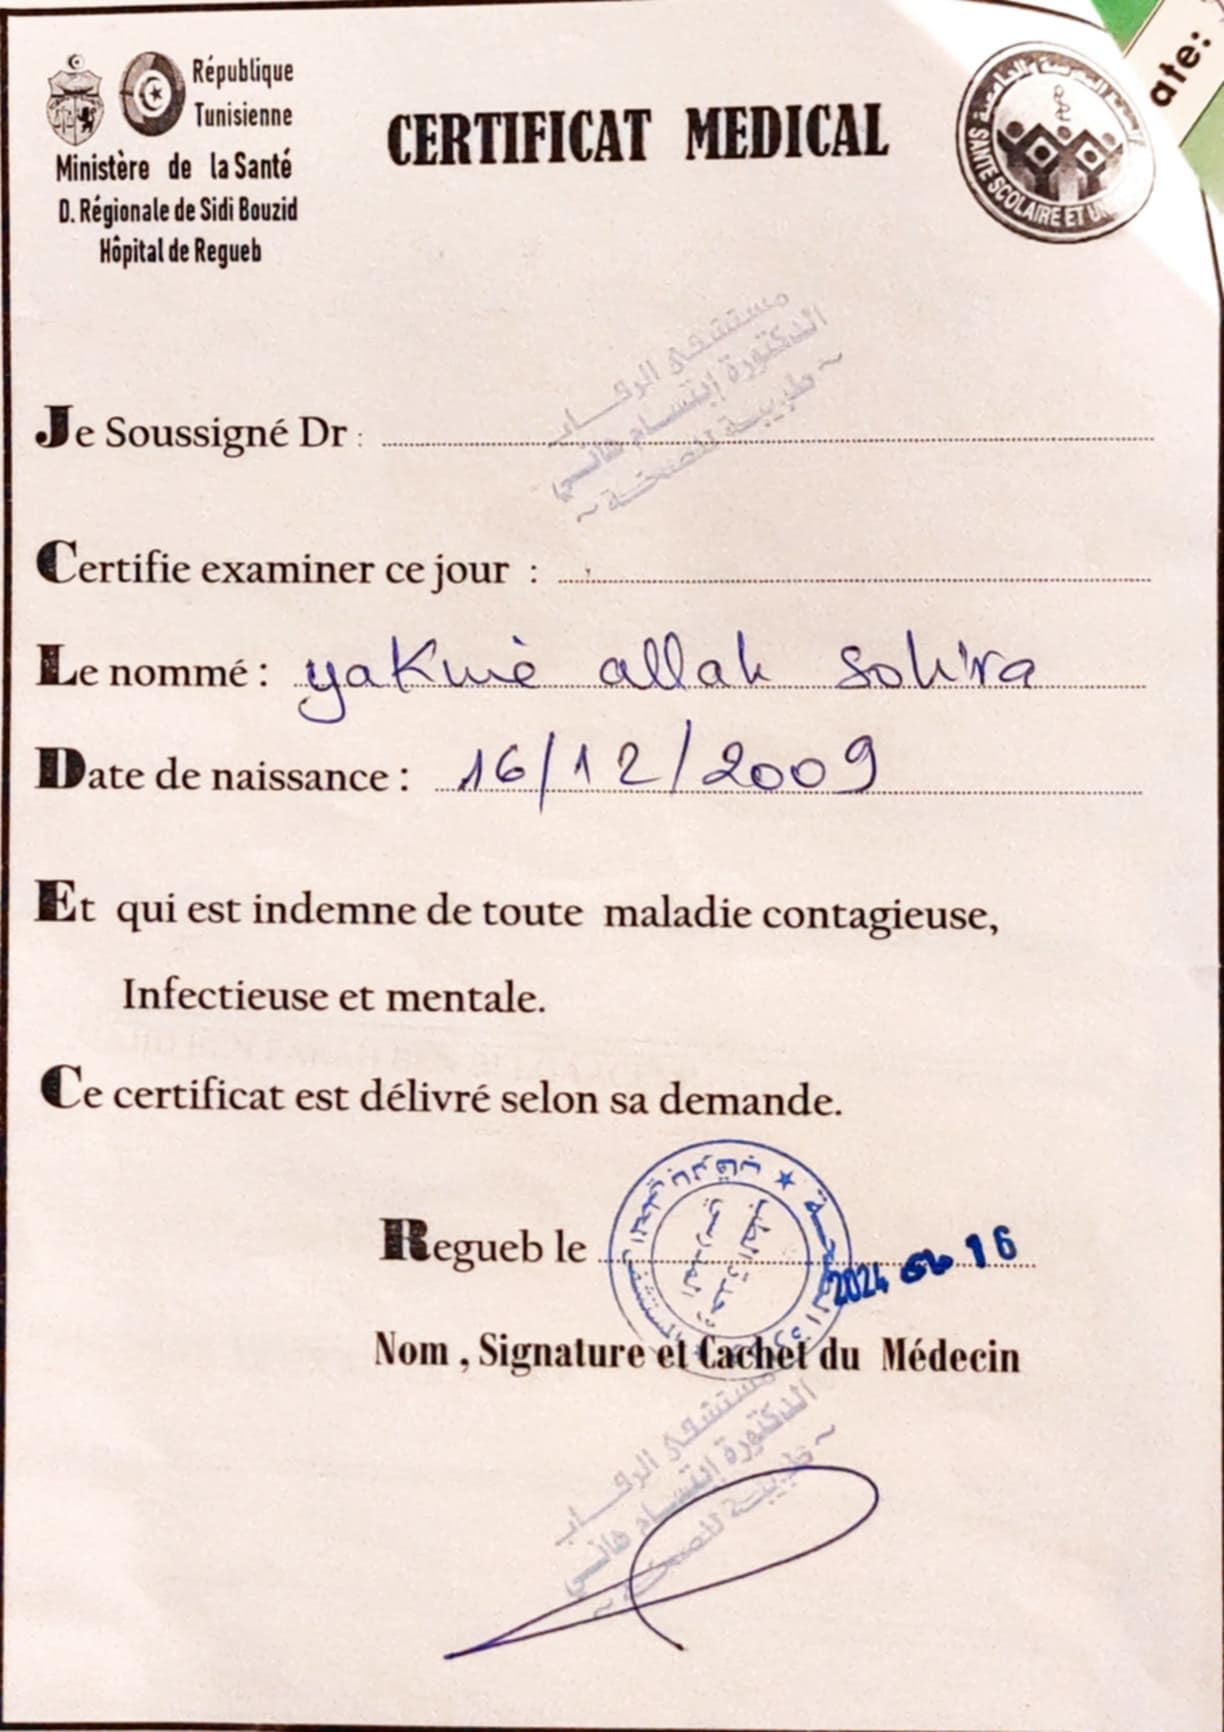 République
Tunisienne
Ministère de la Santé
D. Régionale de Sidi Bouzid
Hôpital de Regueb
CERTIFICAT MEDICAL
SANTE SCOLAIRE ET
ate:
مستشفى الرقاب
الدكتورة إبتسام هاني
~ طبيبة للصحة ~
Je Soussigné Dr :
Certifie examiner ce jour :
Le nommé : yakine allah
Date de naissance : 16/12/2009
Et qui est indemne de toute maladie contagieuse,
Infectieuse et mentale.
Ce certificat est délivré selon sa demande.
Regueb le 16 ماي 2024
الطب
المدرسي
Nom , Signature et Cachet du Médecin
مستشفى الرقاب
الدكتورة إبتسام هاني
~ طبيبة للصحة ~